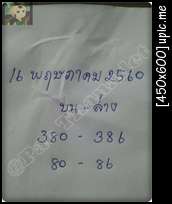 16 พฤษภาคม 2560
บน - ล่าง
380 - 386
80 - 86
[450x600] upic.me